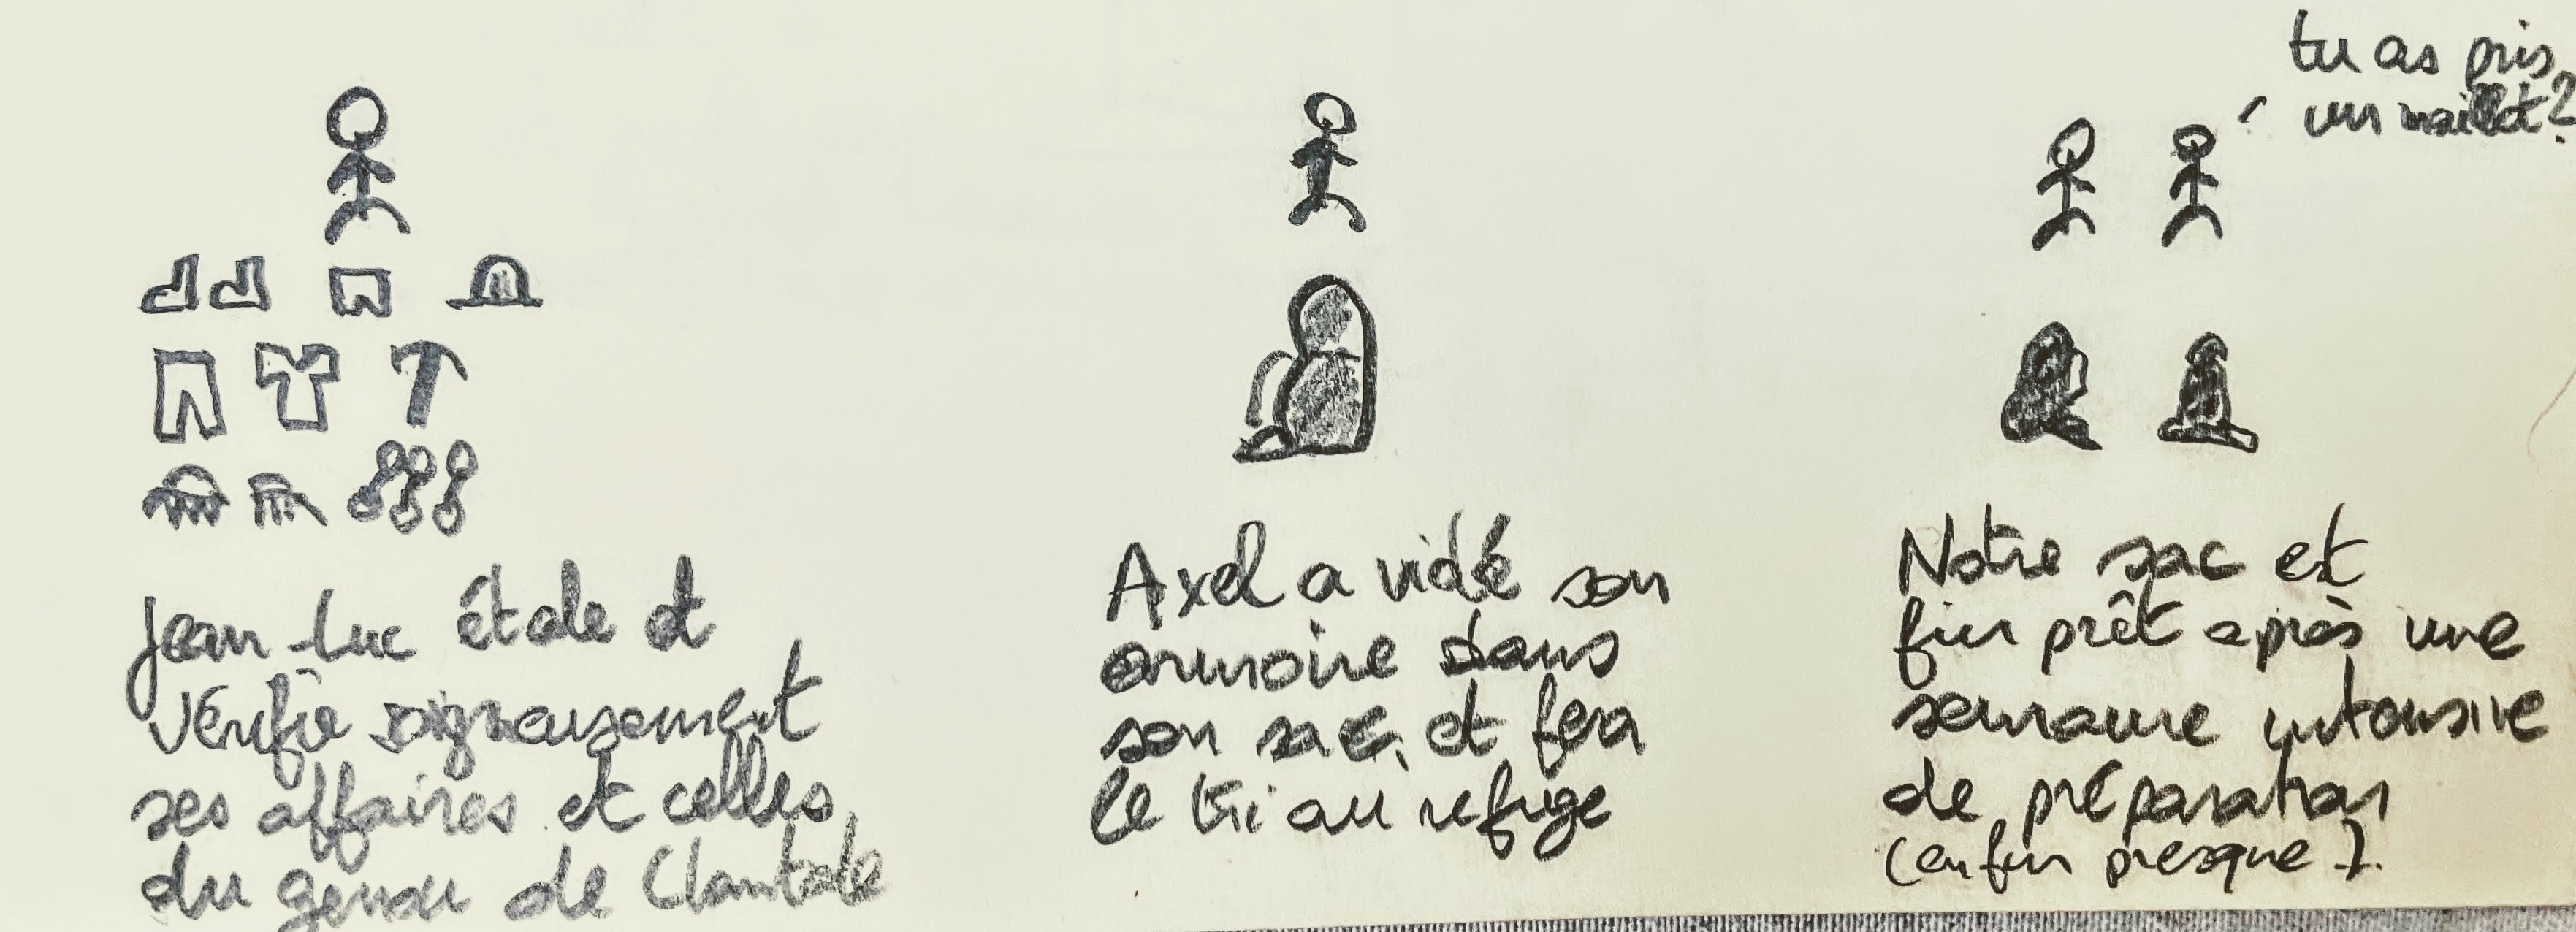 Jean-Luc étale et
vérifie soigneusement
ses affaires et celles
du genou de Chantale
Axel a vidé son
armoire dans
son sac, et fera
le tri au refuge
tu as pris
un maillot?
Notre sac et
fin prêt après une
semaine intensive
de préparation
(enfin presque).